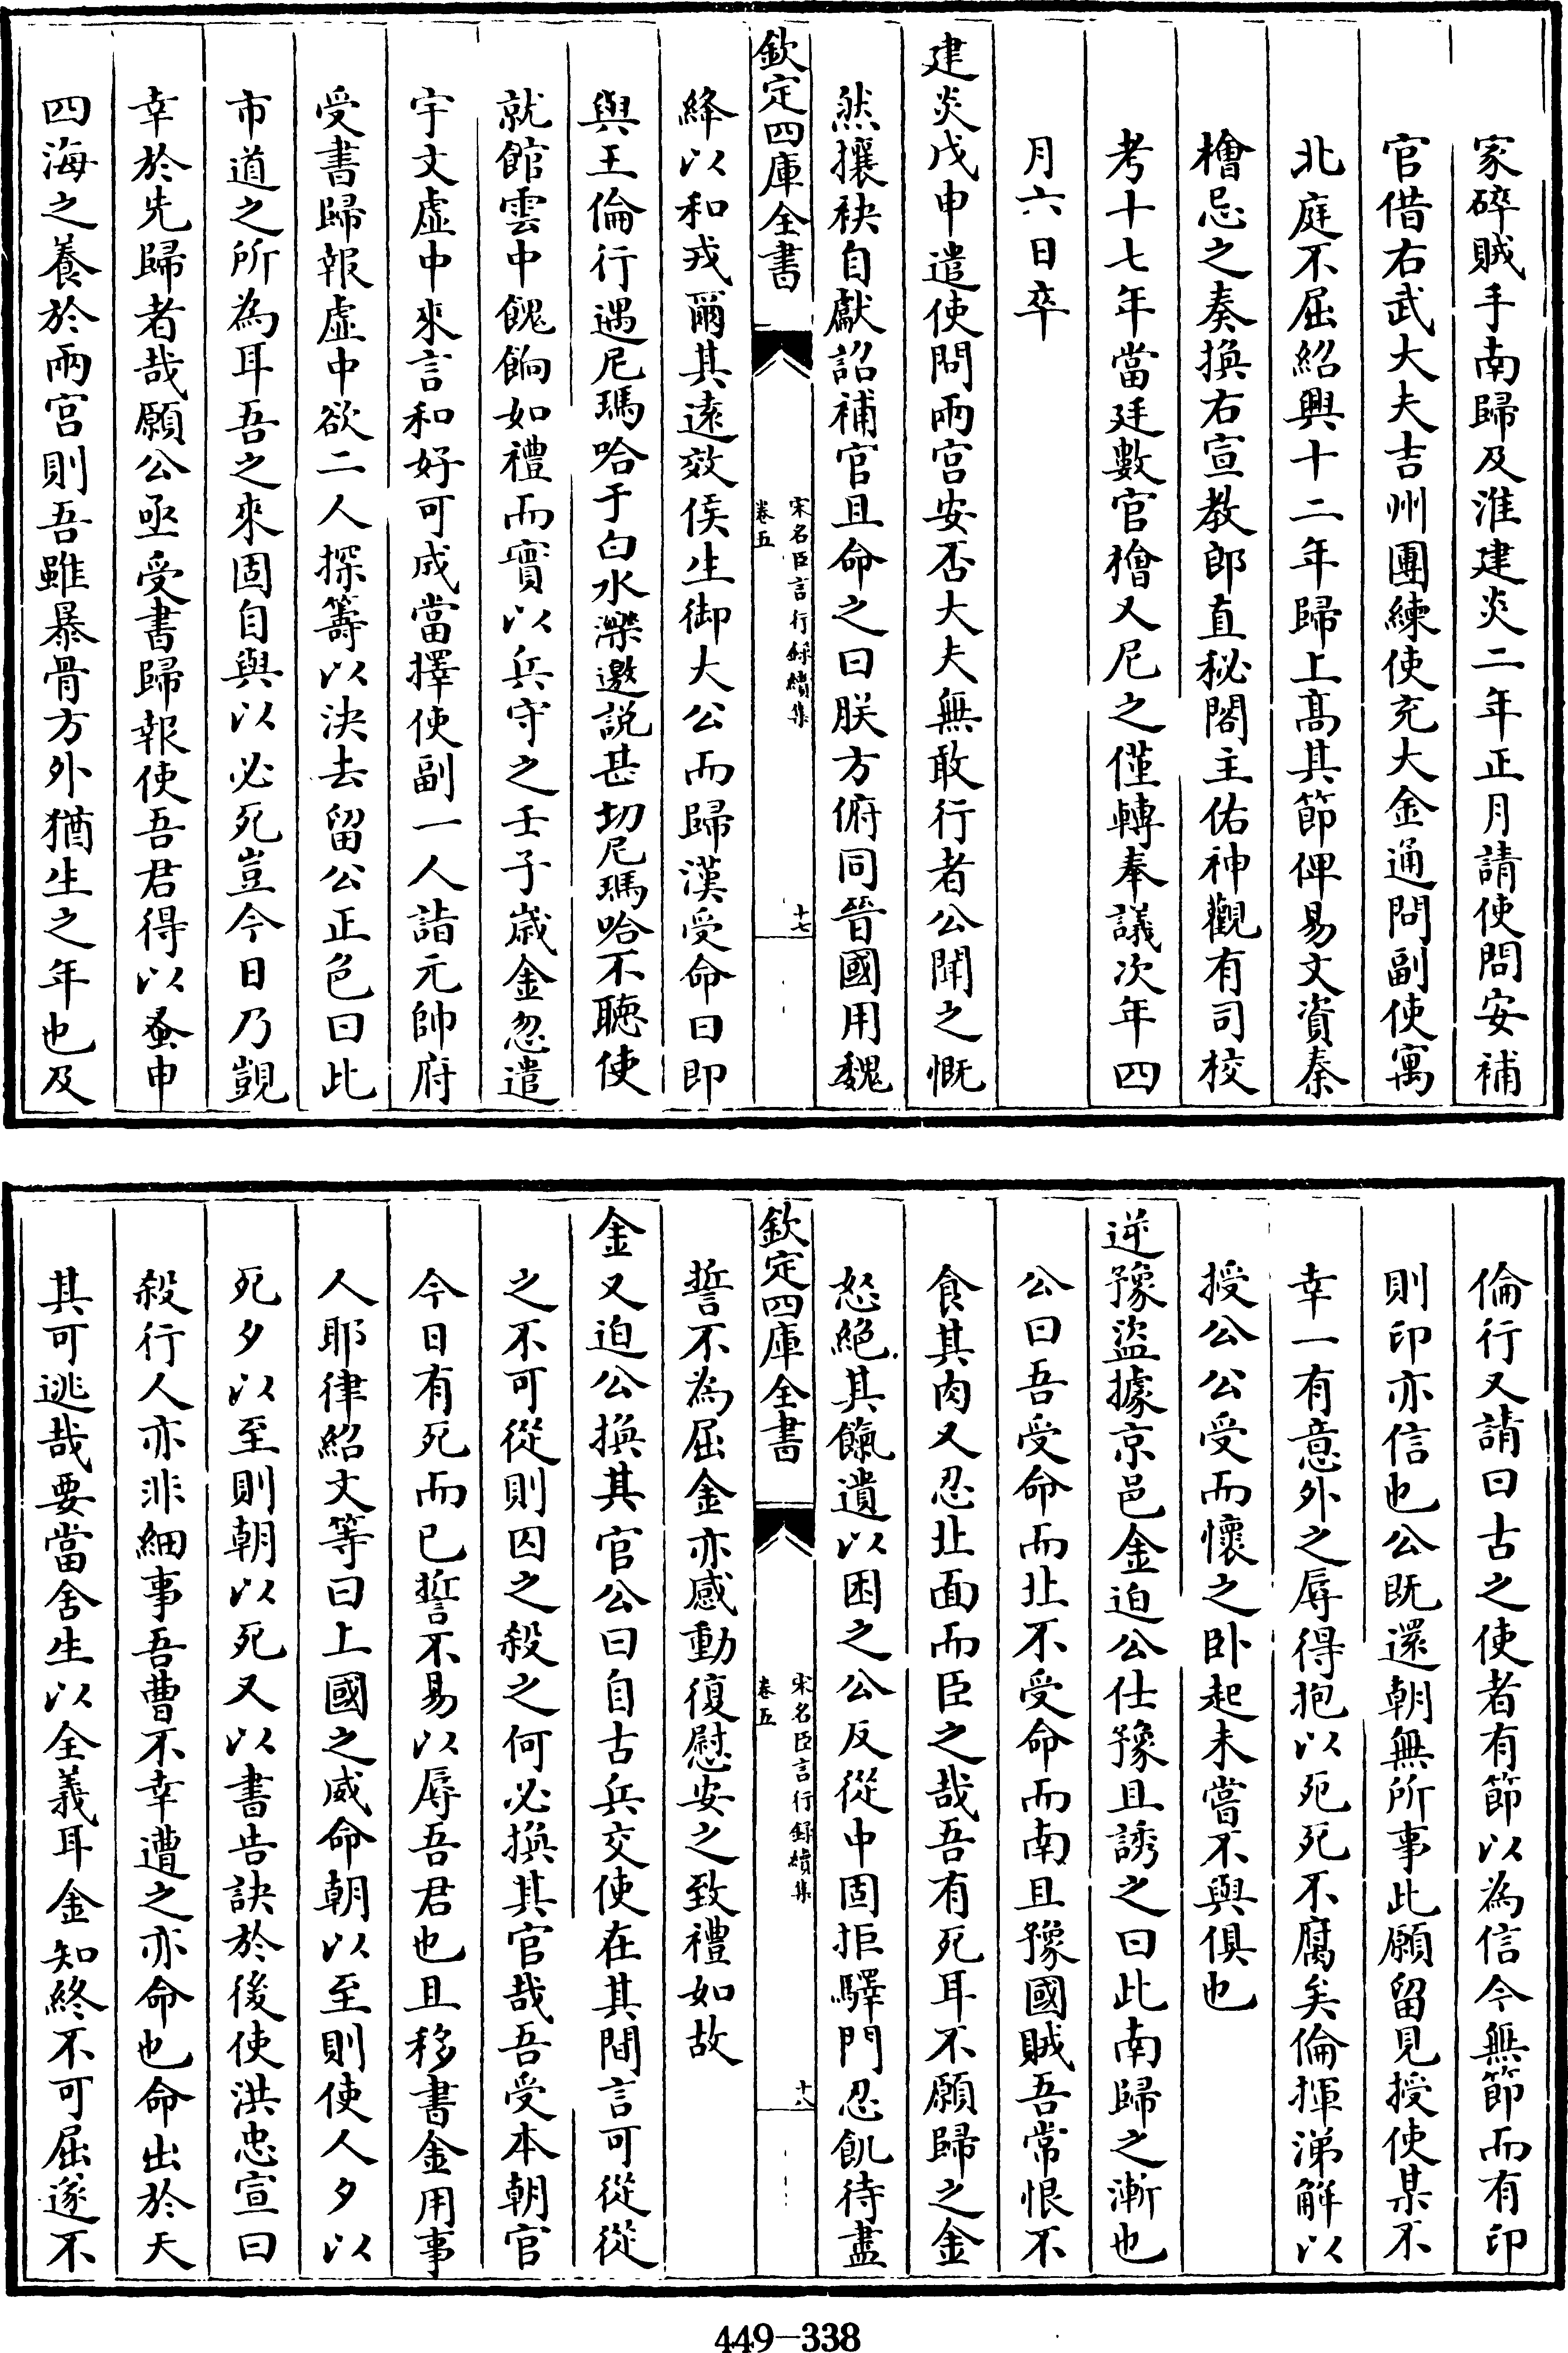 家碎賊手南歸及淮建炎二年正月請使問安補
官借右武大夫吉州團練使充大金通問副使寓
北庭不屈紹興十二年歸上髙其節俾易文資秦
檜忌之奏換右宣教郎直秘閣主佑神觀有司校
考十七年當廷數官獪又尼之僅轉奉議次年四
月六日卒
建炎戊申遣使問兩宫安否大夫無敢行者公聞之慨
然攘袂自獻詔補官且命之曰朕方俯同晉國用魏
欽定四庫全書
宋名臣言行録續集
卷五
十七
絳以和戎爾其遠效侯生御大公而歸漢受命曰即
與王倫行遇尼瑪哈于白水濼邀説甚切尼瑪哈不聽使
就館雲中餽餉如禮而實以兵守之壬子歲金忽遣
宇文虚中來言和好可成當擇使副一人詣元帥府
受書歸報虚中欲二人探籌以決去留公正色曰此
市道之所為耳吾之來固自與以必死豈今日乃覬
幸於先歸者哉願公亟受書歸報使吾君得以蚤申
四海之養於兩宫則吾雖暴骨方外猶生之年也及
倫行又請曰古之使者有節以為信今無節而有印
則印亦信也公既還朝無所事此願留見授使某不
幸一有意外之辱得抱以死死不腐矣倫揮涕解以
授公公受而懷之卧起未嘗不與俱也
逆豫盜據京邑金迫公仕豫且誘之曰此南歸之漸也
公曰吾受命而北不受命而南且豫國賊吾常恨不
食其肉又忍北面而臣之哉吾有死耳不願歸之金
怒絶其餼遺以困之公反從中固拒驛門忍飢待盡
欽定四庫全書
宋名臣言行録續集
卷五
十八
誓不為屈金亦感動復慰安之致禮如故
金又迫公換其官公曰自古兵交使在其間言可從從
之不可從則囚之殺之何必換其官哉吾受本朝官
今日有死而已誓不易以辱吾君也且移書金用事
人耶律紹文等曰上國之威命朝以至則使人夕以
死夕以至則朝以死又以書告訣於後使洪忠宣曰
殺行人亦非細事吾曹不幸遭之亦命也命出於天
其可逃哉要當舍生以全義耳金知終不可屈遂不
449-338